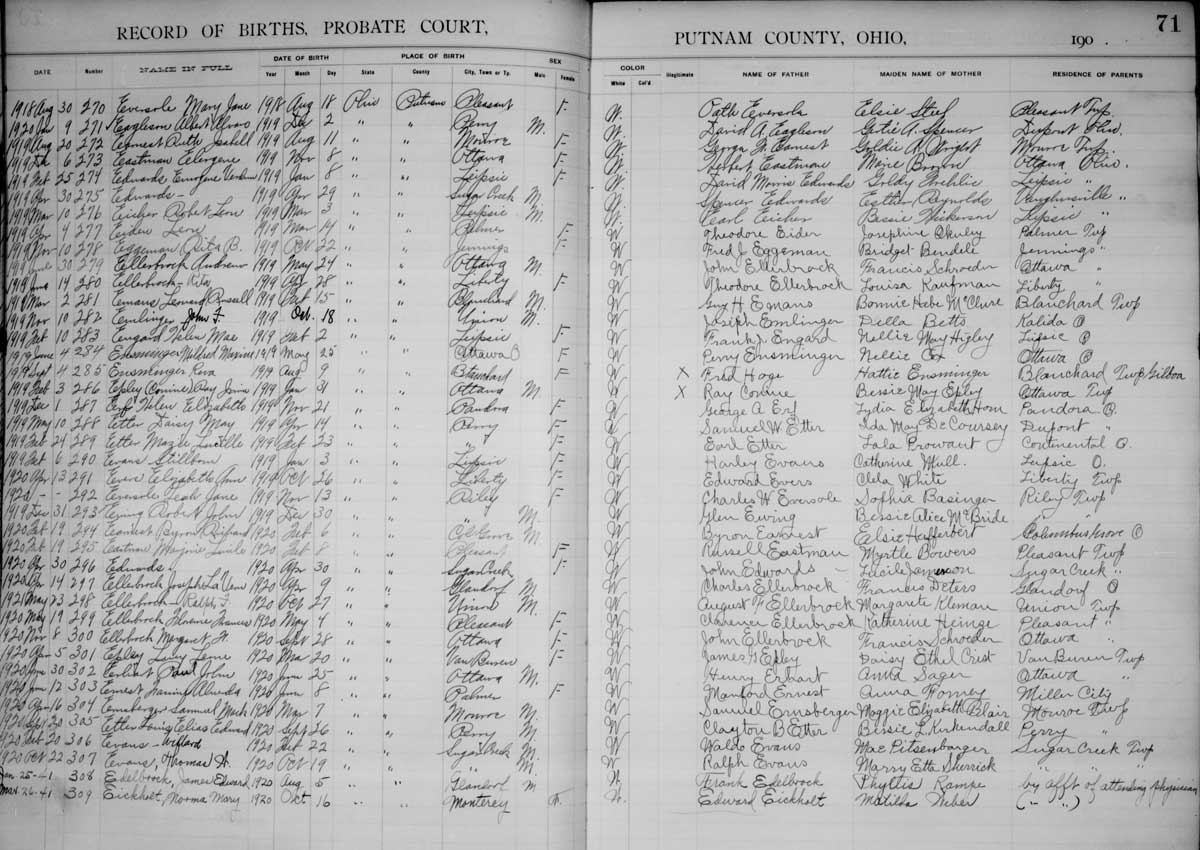 RECORD OF BIRTHS, PROBATE COURT, PUTNAM COUNTY, OHIO, 190 . 71
DATE Number NAME IN FULL DATE OF BIRTH Year Month Day PLACE OF BIRTH State County City, Town or Tp. SEX Male Female COLOR White Col'd Illegitimate NAME OF FATHER MAIDEN NAME OF MOTHER RESIDENCE OF PARENTS
1918 Aug 30 270 Eversole Mary Jane 1918 Aug 18 Ohio Putnam Pleasant F W. Eversole Elsie Pleasant Twp.
1920 Jan 9 271 Albert 1919 Dec 2 " " Perry M. W. David A. Gertie A. Spencer Dupont Ohio.
1919 Aug 20 272 Earnest Ruth 1919 Aug 11 " " Monroe F W. George Earnest Goldie A. Wright Monroe Twp.
1919 6 273 Eastman 1919 Nov 8 " " Ottawa F W. Herbert Eastman Marie Brown Ottawa Ohio.
1919 Feb 25 274 Edwards 1919 Jan 8 " " Leipsic F W. David Morris Edwards Goldy Leipsic "
1919 Apr 30 275 Edwards - 1919 Apr 29 " " Sugar Creek M W. Spencer Edwards Esther Reynolds Vaughnsville "
1919 Mar 10 276 Eicher Robert Leon 1919 Mar 3 " " Leipsic M. W Pearl Eicher Bessie Leipsic "
1919 Apr 4 277 Eider 1919 Mar 14 " " Palmer F W Theodore Eider Josephine Palmer Twp
1919 Nov 10 278 Eggeman Rita B. 1919 Oct 22 " " Jennings F W Fred J. Eggeman Bridget Bendele Jennings "
1919 June 30 279 Ellerbrock Andrew 1919 May 24 " " Ottawa M. W John Ellerbrock Francis Schroeder Ottawa "
1919 June 14 280 Ellerbrock - Rita 1919 Apr 28 " " Liberty F W Theodore Ellerbrock Louisa Kaufman Liberty "
1919 Mar 2 281 Emans Leonard Russell 1919 Feb 15 " " Blanchard M. W Guy H. Emans Bonnie Hebe McClure Blanchard Twp
1919 Nov 10 282 Emlinger John F. 1919 Oct. 18 " " Union M. W Joseph Emlinger Della Betts Kalida O
1919 Feb 10 283 Engard Helen Mae 1919 Feb 2 " " Leipsic F W Frank J. Engard Nellie May Higley Leipsic O
1919 June 4 284 Ensminger Mildred Maxine 1919 May 25 " " Ottawa O F W Perry Ensminger Nellie Cox Ottawa O
1919 Sept 4 285 Ensminger Reva 1919 Aug 9 " " Blanchard F W X Fred Hoge Hattie Ensminger Blanchard Twp Gilboa
1919 Feb 3 286 Epley (Connie) Ray 1919 Jan 31 " " Ottawa M W X Ray Connie Bessie May Epley Ottawa Twp
1919 Dec 1 287 Erf Helen Elizabeth 1919 Nov 21 " " Pandora F W George A. Erf Lydia Elizabeth Horn Pandora O.
1919 May 10 288 Etter Daisy May 1919 Apr 14 " " Perry F W Samuel W. Etter Ida May DeCoursey Dupont "
1919 Feb 24 289 Etter Mazie Lucille 1919 Feb 23 " " " F W Earl Etter Lala Prowant Continental O.
1919 Feb 6 290 Evans Stillborn 1919 Jan 3 " " Leipsic F W Harley Evans Catherine Mull. Leipsic O.
1920 Apr 13 291 Evers Elizabeth Ann 1919 Oct 26 " " Liberty F W Edward Evers Clela White Liberty Twp
1920 - - 292 Eversole Leah Jane 1919 Nov 13 " " Riley F W Charles W. Eversole Sophia Basinger Riley Twp
1919 Dec 31 293 Ewing Robert John 1919 Dec 30 " " " M. W Glen Ewing Bessie Alice McBride "
1920 Feb 19 294 Earnest Byron Richard 1920 Feb 6 " " Col Grove M. W Byron Earnest Elsie Hefferbert Columbus Grove O
1920 Feb 19 295 Eastman Marjorie 1920 Feb 8 " " Pleasant F W Russell Eastman Myrtle Bowers Pleasant Twp
1920 Apr 30 296 Edwards 1920 Apr 30 " " Sugar Creek F W John Edwards - Lucile Jamerson Sugar Creek "
1920 Apr 14 297 Ellerbrock Joseph 1920 Apr 9 " " Glandorf M W Charles Ellerbrock Francis Deters Glandorf O
1921 May 23 298 Ellerbrock - Ralph F. 1920 Oct 27 " " Union M. W August F Ellerbrock Margarite Kleman Union Twp
1920 May 19 299 Ellerbrock Florence Frances 1920 May 4 " " Pleasant F W Clarence Ellerbrock Katherine Heinge Pleasant "
1920 Nov 8 300 Ellerbrock Margaret 1920 Sept 28 " " Ottawa F W John Ellerbrock Francis Schroeder Ottawa "
1920 Apr 5 301 Epley Lucy 1920 Mar 20 " " Van Buren F W James Epley Daisy Ethel Crist Van Buren Twp
1920 June 30 302 Erhart Paul John 1920 June 25 " " Ottawa M. W Henry Erhart Anna Sager Ottawa "
1920 June 12 303 Ernest Almeda 1920 June 8 " " Palmer F W Manford Ernest Anna Forney Miller City
1920 Apr 16 304 Ernsberger Samuel Mack 1920 Mar 7 " " Monroe M. W Samuel Ernsberger Maggie Elizabeth Blair Monroe Twp
1920 Sept 20 305 Etter Louis Elias Edward 1920 Sept 26 " " Perry M. W Clayton D Etter Bessie L. Kirkendall Perry "
1920 Feb 20 306 Evans - Willard 1920 Feb 22 " " Sugar Creek M. W Waldo Evans Mae Pitsenbarger Sugar Creek Twp
1920 Oct 22 307 Evans, Thomas H. 1920 Oct 19 " " " M. W Ralph Evans Mary Etta Sherrick " "
Jan 25-41 308 Edelbrock, James Edward 1920 Aug 5 " " Glandorf M W. Frank Edelbrock Phyllis Rampe by afft of attending physician
Mar. 26-41 309 Eickholt, Norma Mary 1920 Oct 16 " " Monterey F. W. Edward Eickholt Matilda Weber ( " " )